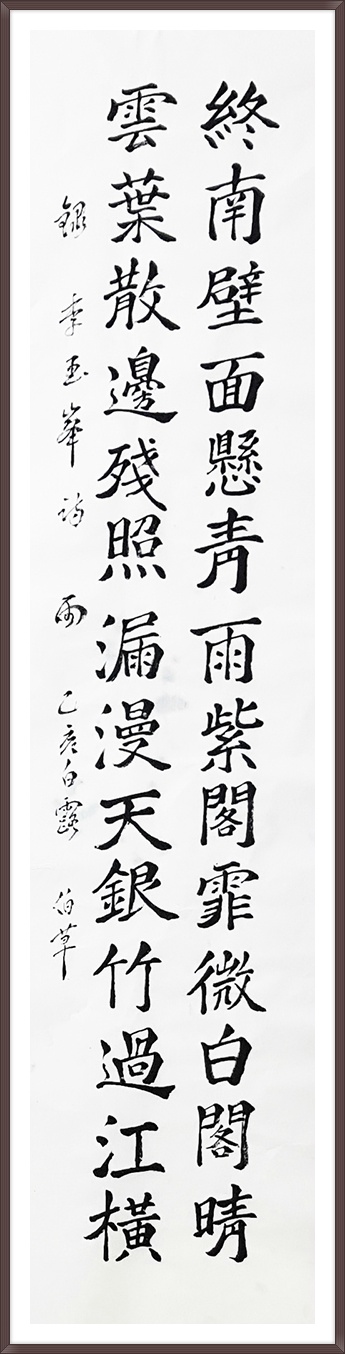 終南壁面懸青雨紫閣霏微白閣晴
雲葉散邊殘照漏漫天銀竹過江橫
錄李玉峯詩 雨 乙亥白露 伯草